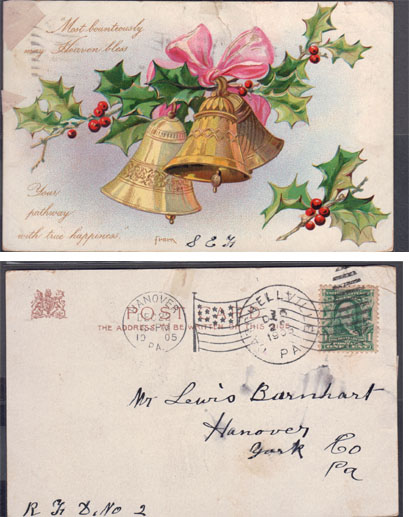 Most bounteously
may Heaven bless
Your
pathway
with true happiness.
from S E H
POST CARD
THE ADDRESS TO BE WRITTEN ON THIS SIDE
HANOVER
1905
PA.
DEC
2
190
PA
Mr Lewis Barnhart
Hanover
York Co
Pa
R F D, No 2